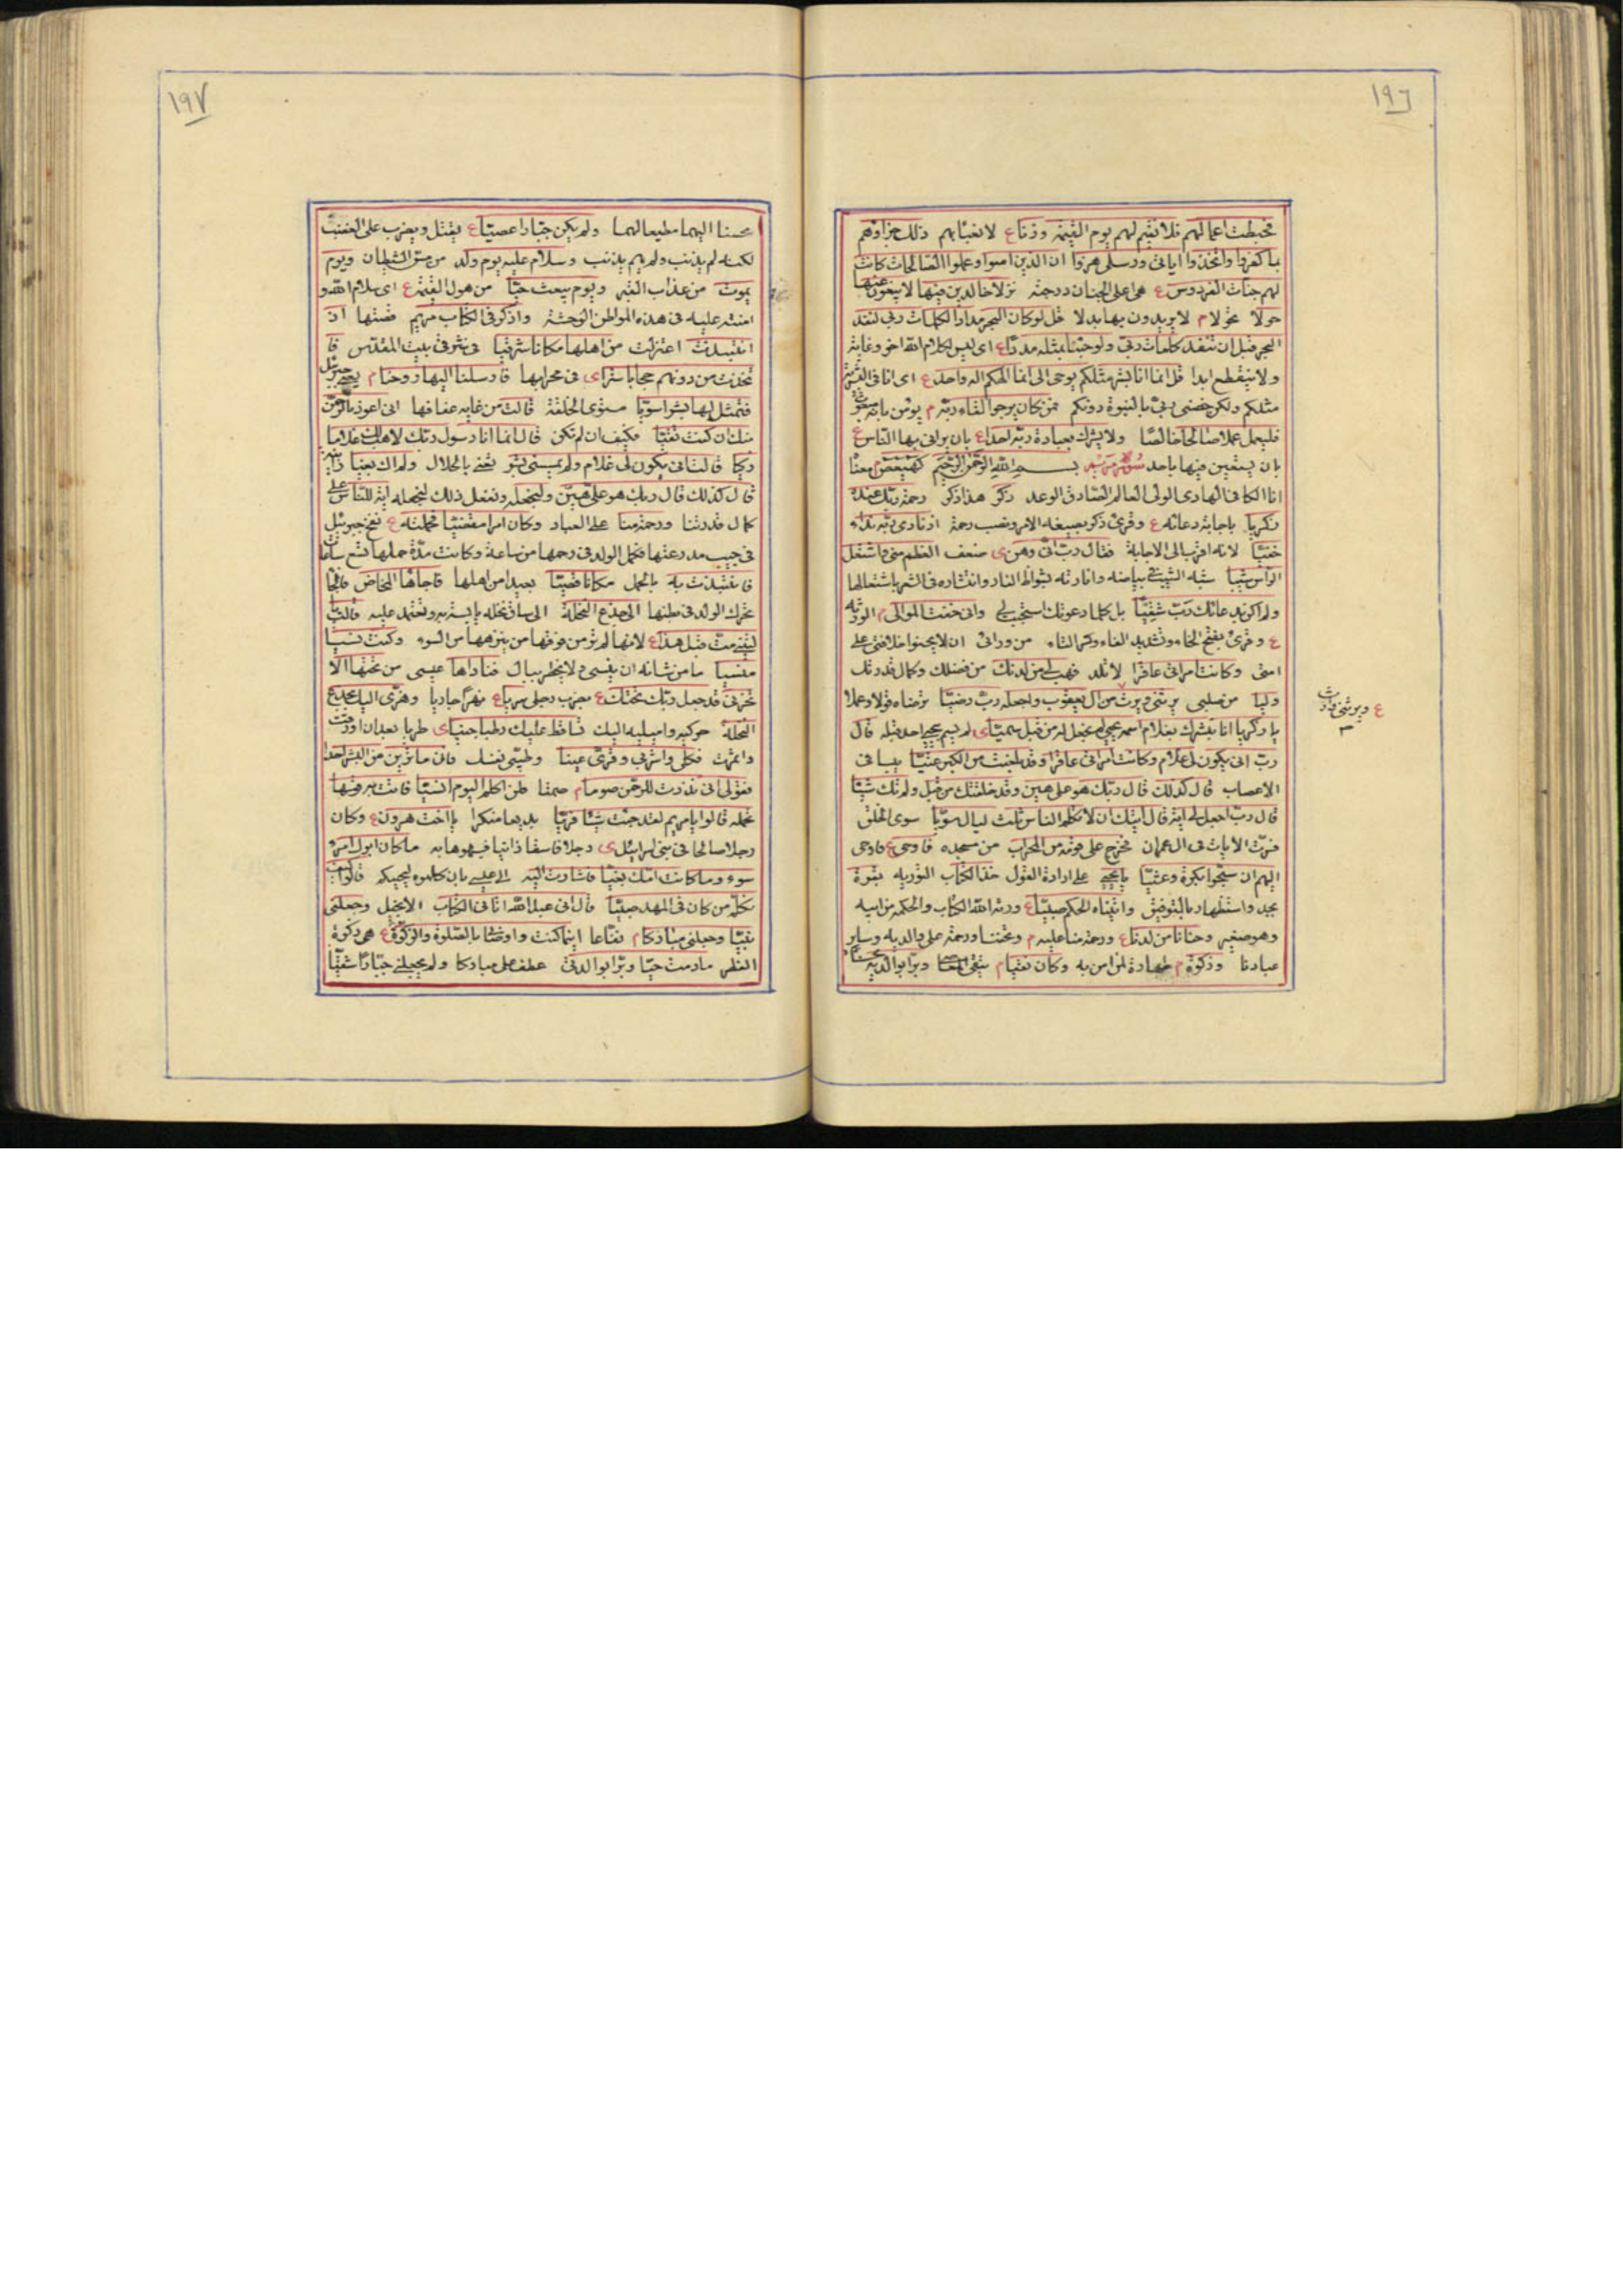 ١٩٦
فحبطت اعمالهم فلا نقيم لهم يوم القيمة وزنا ع لا نعبأ بهم ذلك جزاؤهم
بما كفروا واتخذوا اياتى ورسلى هزوا ان الذين امنوا وعملوا الصالحات كانت
لهم جنات الفردوس ع هى اعلى الجنان درجة نزلا خالدين فيها لا يبغون عنها
حولا تحولا م لا يريدون بها بدلا قل لو كان البحر مدادا لكلمات ربى لنفد
البحر قبل ان تنفد كلمات ربى ولو جئنا بمثله مددا ع اى ليس لكلام الله اخر وغاية
ولا ينقطع ابدا قل انما انا بشر مثلكم يوحى الى انما الهكم اله واحد ع اى انا فى البشرية
مثلكم ولكن خصنى ربى بالنبوة دونكم فمن كان يرجوا لقاء ربه م يؤمن بانه مبعوث
فليعمل عملا صالحا خالصا ولا يشرك بعبادة ربه احدا ع بان يرائى بها الناس ع
بان يستعين فيها باحد سورة مريم بسم الله الرحمن الرحيم كهيعص معناه
انا الكافى الهادى الولى العالم الصادق الوعد ذكر هذا ذكر رحمة ربك عبده
زكريا باجابة دعائه ع وقرئ ذكر بصيغة الامر ونصب رحمة اذ نادى ربه نداء
خفيا لانه اقرب الى الاجابة فقال رب انى وهن ى ضعف العظم منى واشتعل
الرأس شيبا شبه الشيب فى بياضه وانارته بشواظ النار وانتشاره فى الشعر باشتعالها
ولم اكن بدعائك رب شقيا بل كلما دعوتك استجبت لى وانى خفت الموالى م الورثة
ع وقرئ بفتح الخاء وتشديد الفاء وكسر التاء من ورائى ان لا يحسنوا خلافتى على
امتى وكانت امراتى عاقرا لا تلد فهب لى من لدنك من فضلك وكمال قدرتك
وليا من صلبى يرثنى ويرث من ال يعقوب واجعله رب رضيا ترضاه قولا وعملا
يا زكريا انا نبشرك بغلام اسمه يحيى لم نجعل له من قبل سميا ى لم يسم بيحيى احد قبله قال
رب انى يكون لى غلام وكانت امراتى عاقرا وقد بلغت من الكبر عتيا يبسا فى
الاعصاب قال كذلك قال ربك هو على هين وقد خلقتك من قبل ولم تك شيئا
قال رب اجعل لى اية قال ايتك ان لا تكلم الناس ثلث ليال سويا سوى الخلق
فسرت الايات فى ال عمران فخرج على قومه من المحراب من مسجده فاوحى ع فاومى
اليهم ان سبحوا بكرة وعشيا يا يحيى على ارادة القول خذ الكتاب التورية بقوة
بجد واستظهار بالتوفيق واتيناه الحكم صبيا ع ورثه الله الكتاب والحكمة من ابيه
وهو صغير وحنانا من لدنا ع ورحمة منا عليه م وتحننا ورحمة على والديه وساير
عبادنا وزكوة م طهارة لمن امن به وكان تقيا م يتقى وبرا بوالديه
ع ويرثنى وارث
١٩٧
محسنا اليهما مطيعا لهما ولم يكن جبارا عصيا ع يقتل ويضرب على الغضب
لكنه لم يذنب ولم يهم بذنب وسلام عليه يوم ولد من مس الشيطان ويوم
يموت من عذاب القبر ويوم يبعث حيا من هول القيمة ع اى سلام الله و
امنته عليه فى هذه المواطن الوحشة واذكر فى الكتاب مريم قصتها اذ
انتبذت اعتزلت من اهلها مكانا شرقيا فى شرقى بيت المقدس فا
تخذت من دونهم حجابا سترا ى فى محرابها فارسلنا اليها روحنا م يعنى جبرئيل
فتمثل لها بشرا سويا مستوى الخلقة قالت من غاية عفافها انى اعوذ بالرحمن
منك ان كنت تقيا فكيف ان لم تكن قال انما انا رسول ربك لاهب لك غلاما
زكيا قالت انى يكون لى غلام ولم يمسسنى بشر يعنى بالحلال ولم اك بغيا زانية
قال كذلك قال ربك هو على هين ولنجعله ونفعل ذلك لنجعله اية للناس على
كمال قدرتنا ورحمة منا على العباد وكان امرا مقضيا فحملته ع نفخ جبرئيل
فى جيب مدرعتها فكمل الولد فى رحمها من ساعة وكانت مدة حملها تسع ساعات
فانتبذت به بالحمل مكانا قصيا بعيدا من اهلها فاجاءها المخاض فالجأها
تحرك الولد فى بطنها الى جذع النخلة الى ساق نخلة يابسة تستر به وتعتمد عليه قالت يا
ليتنى مت قبل هذا ع لانها لم تر من قومها من ينزهها من السوء وكنت نسيا
منسيا ما من شانه ان ينسى ولا يخطر ببال فناداها عيسى من تحتها الا
تحزنى قد جعل ربك تحتك ع بضرب رجل سريا ع نهرا جاريا وهزى اليك بجذع
النخلة حركيه واميليه اليك تساقط عليك رطبا جنيا ى طريا بعد ان اورقت
واثمرت فكلى واشربى وقرى عينا وطيبى نفسا فاما ترين من البشر احدا
فقولى انى نذرت للرحمن صوما م صمتا فلن اكلم اليوم انسيا فاتت به قومها
تحمله قالوا يا مريم لقد جئت شيئا فريا بديعا منكرا يا اخت هرون ع وكان
رجلا صالحا فى بنى اسرائيل ى رجلا فاسقا زانيا فشبهوها به ما كان ابوك امرء
سوء وما كانت امك بغيا فاشارت اليه الى عيسى بان كلموه ليجيبكم قالوا كيف
نكلم من كان فى المهد صبيا قال انى عبد الله اتانى الكتاب الانجيل وجعلنى
نبيا وجعلنى مباركا م نفاعا اينما كنت واوصانى بالصلوة والزكوة ع هى زكوة
الفطر ما دمت حيا وبرا بوالدتى عطف على مباركا ولم يجعلنى جبارا شقيا